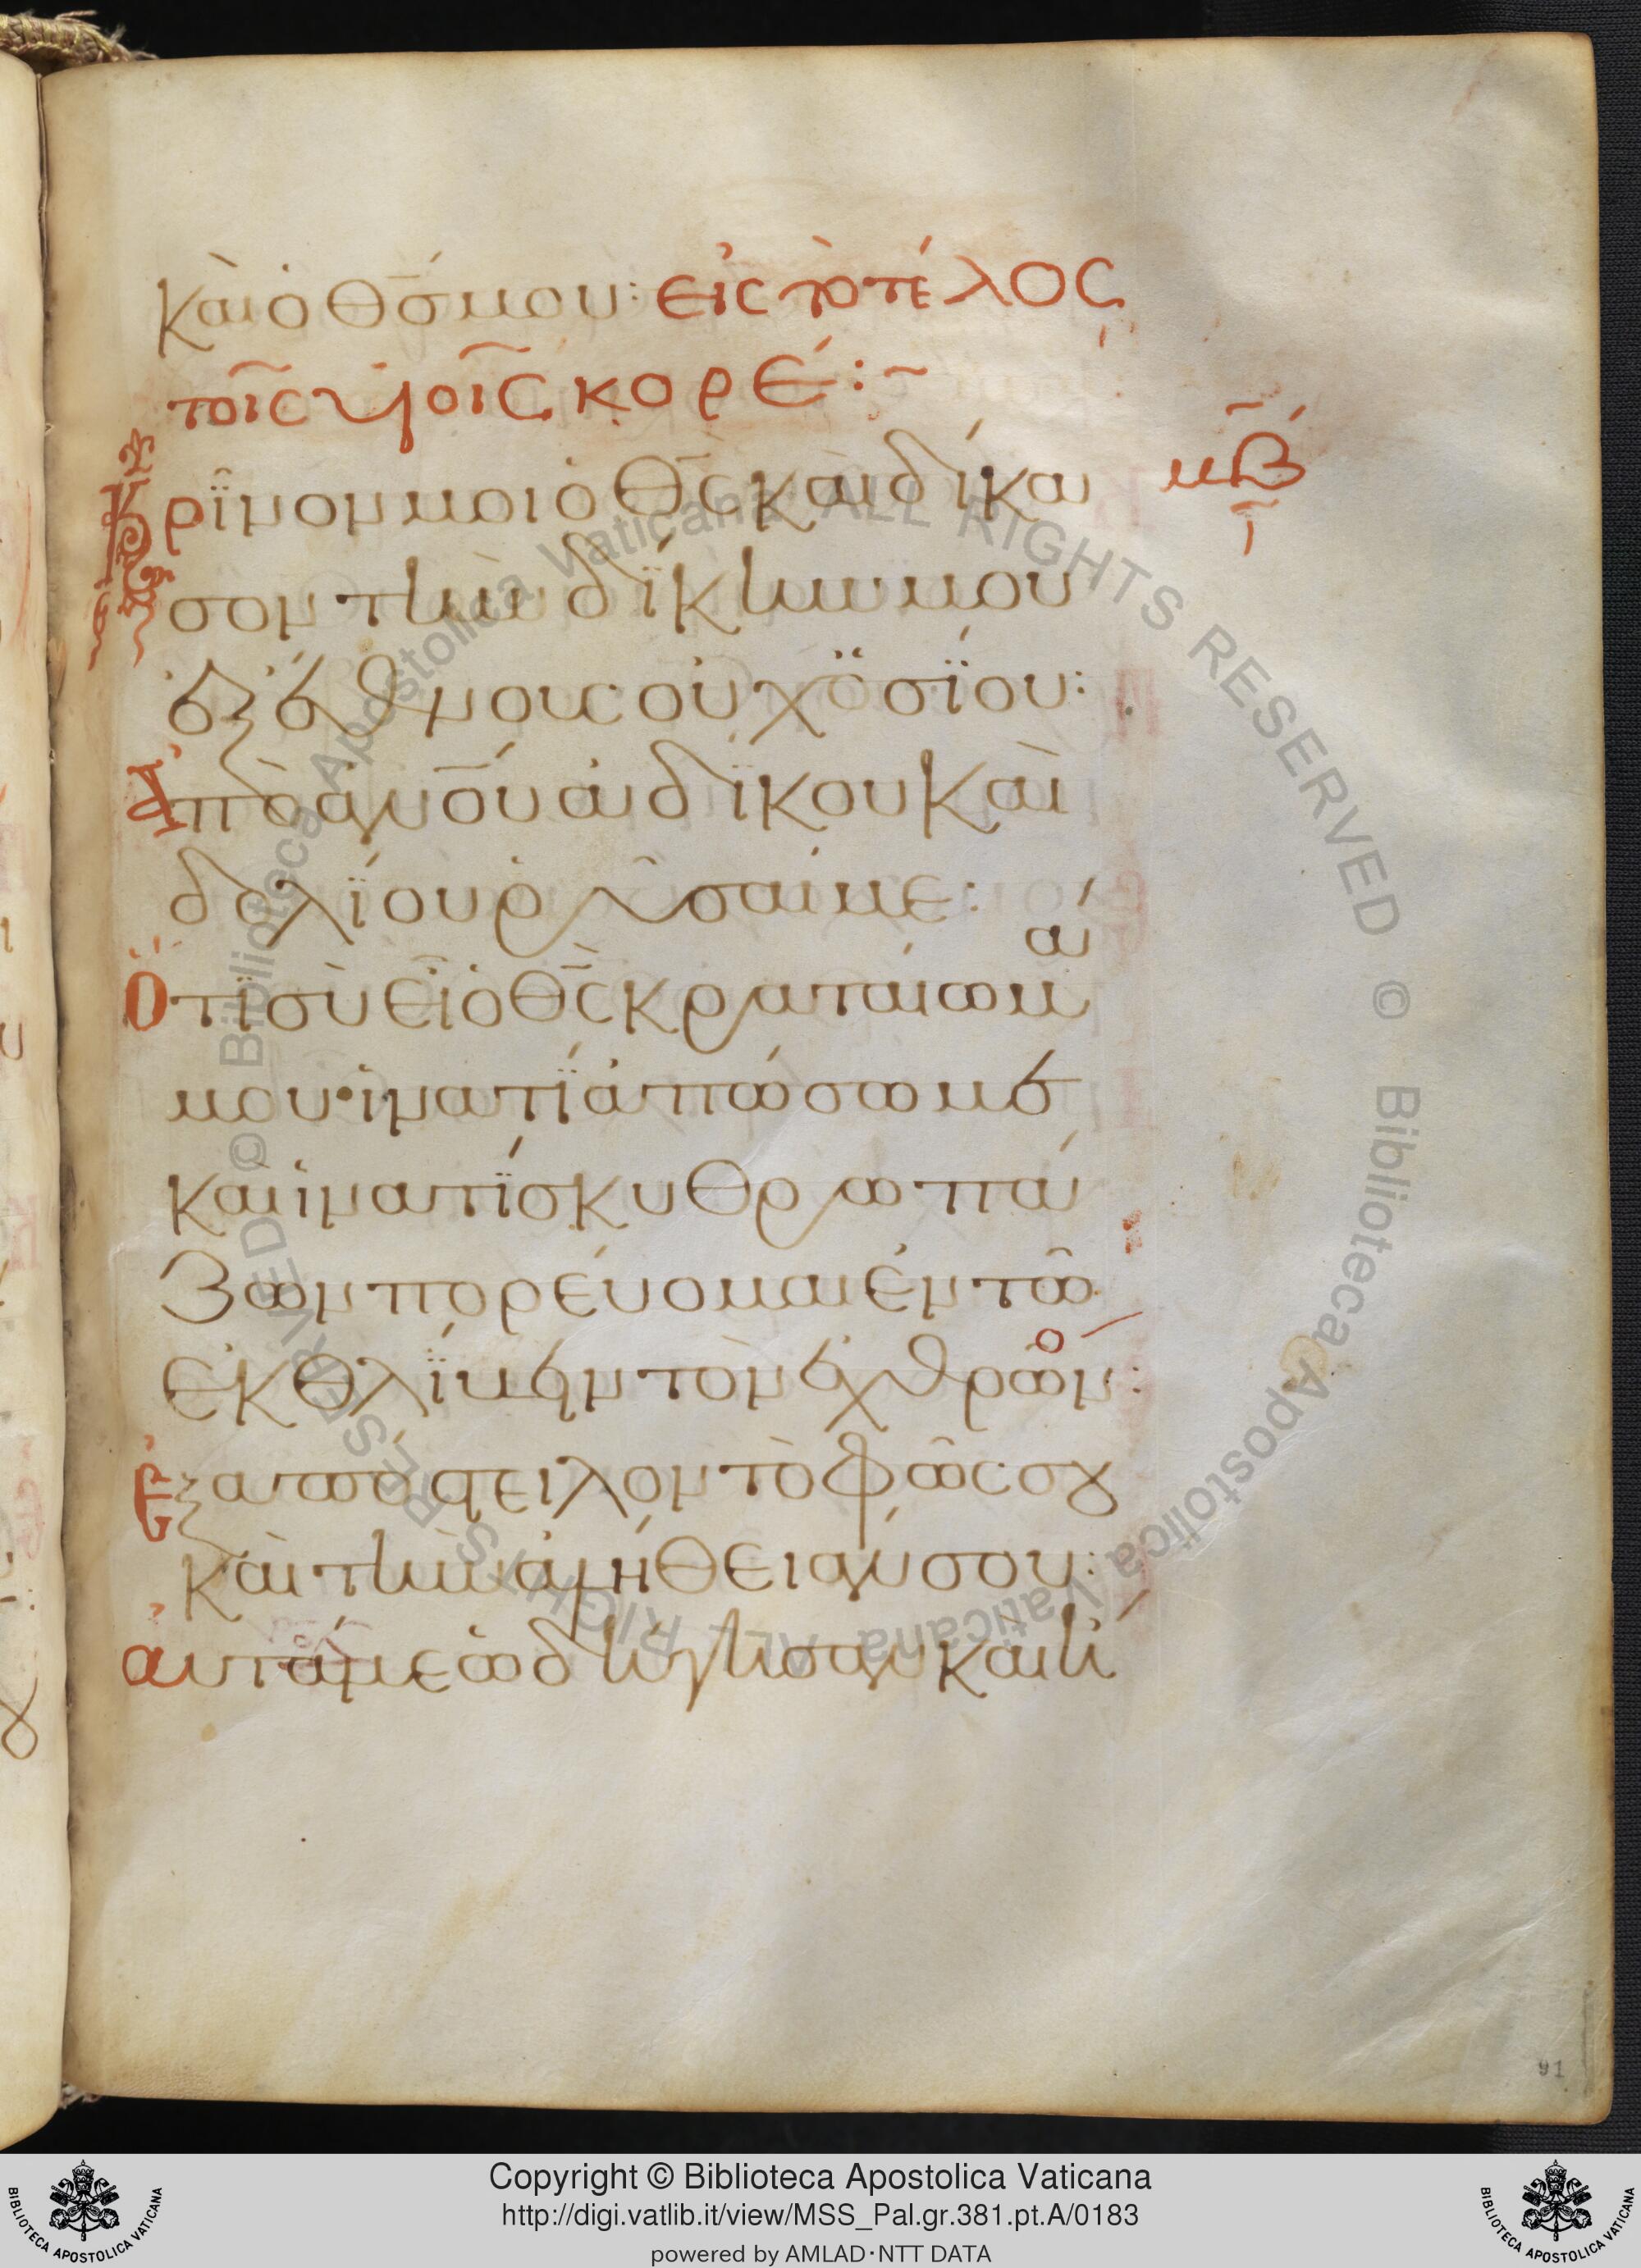 καὶ ὁ θσ̅ μου: εἰς τὸ τέλος
τοῖς υἱοῖς κορέ:~
Κρῖνον μοι ὁ θς̅ καὶ δίκα
μβ
σον τὴν δίκην μου
ἐξ ἔθνους οὐχ ὁσίου:
Ἀπὸ ανου̅ ἀδίκου καὶ
δολίου ῥῦσαί με:
Ὅτι σὺ εἶ ὁ θς̅ κραταίωμά
μου· ἱνατί ἀπώσω με
καὶ ἱνατί σκυθρωπά
ζων πορεύομαι ἐν τῶ
ἐκθλίβειν τὸν ἐχθρόν:
Ἐξαπόστειλον τὸ φῶς σου
καὶ τὴν ἀλήθειαν σου:
αὐτά με ὡδήγησαν καὶ ἤ
91
© Biblioteca Apostolica Vaticana ALL RIGHTS RESERVED © Biblioteca Apostolica Vaticana ALL RIGHTS RESERVED
BIBLIOTECA APOSTOLICA VATICANA
Copyright © Biblioteca Apostolica Vaticana
http://digi.vatlib.it/view/MSS_Pal.gr.381.pt.A/0183
powered by AMLAD·NTT DATA
BIBLIOTECA APOSTOLICA VATICANA